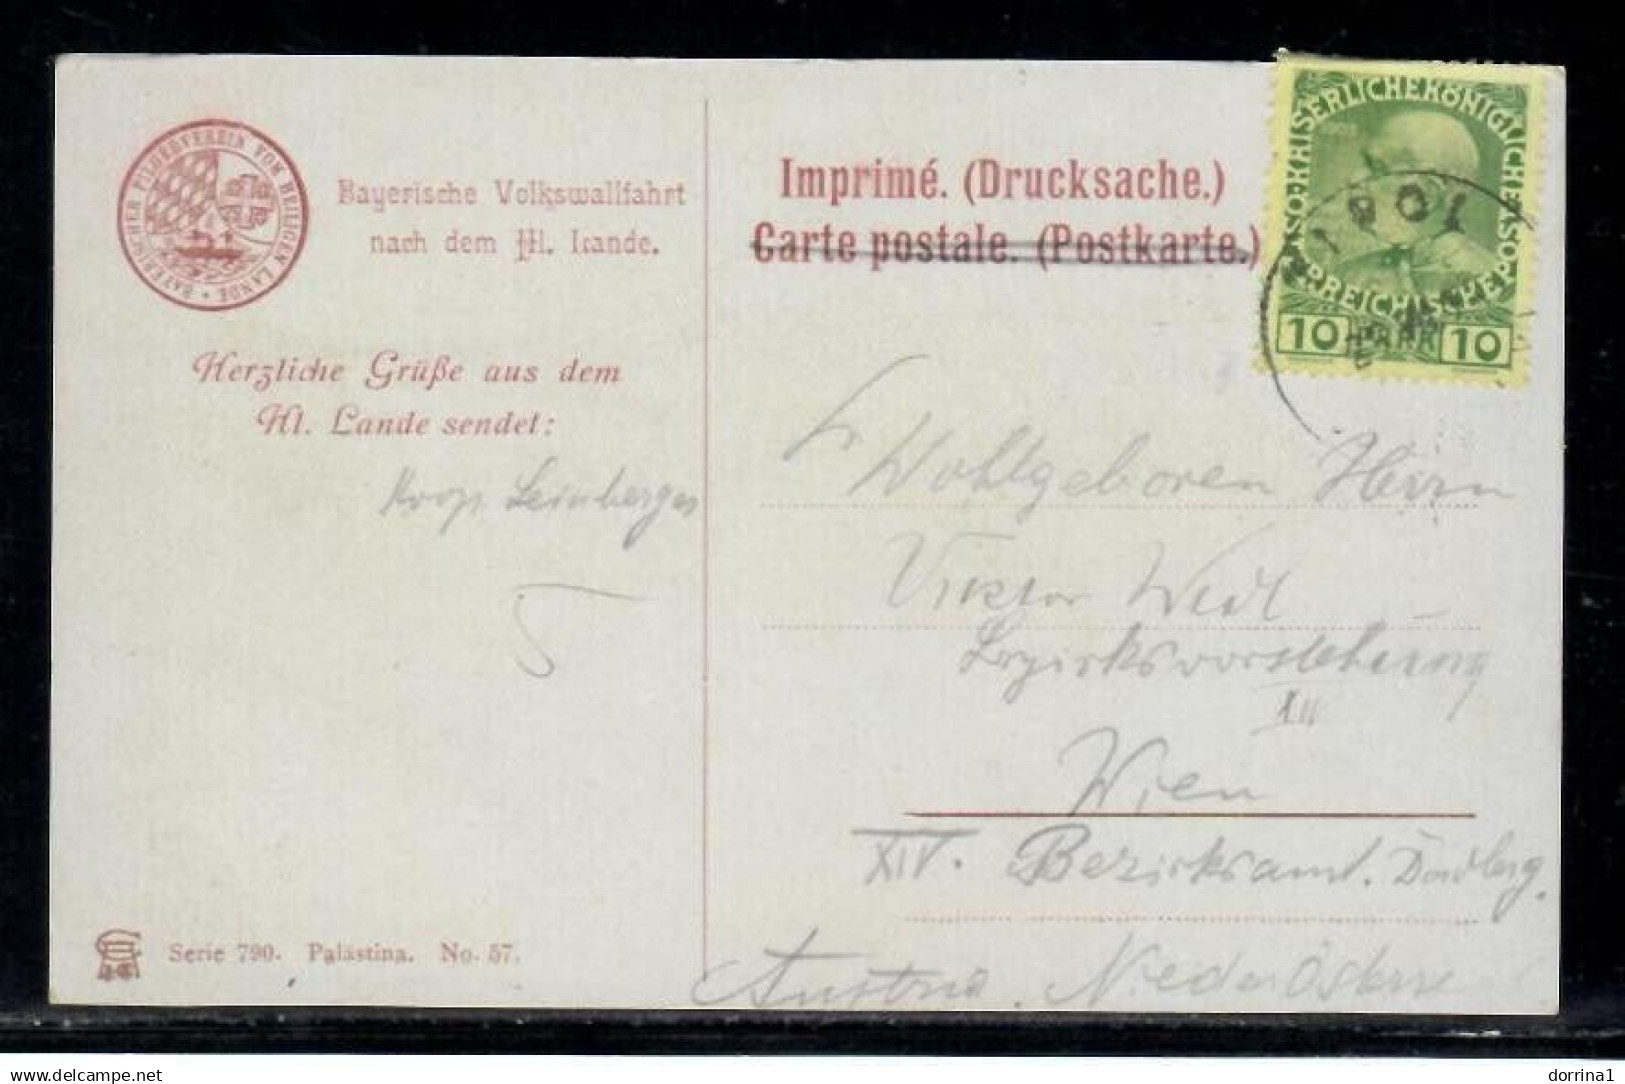 BAYERISCHER PILGERVEREIN VOM HEILIGEN LANDE
Bayerische Volkswallfahrt
nach dem Hl. Lande.
Herzliche Grüße aus dem
Hl. Lande sendet:
Leinberger
Serie 790. Palästina. No. 57.
Imprimé. (Drucksache.)
Carte postale. (Postkarte.)
KAISERLICHEKÖNIGLICHE
ÖSTERREICHISCHEPOST
1908
10 10
Wohlgeboren Herrn
Viktor Weidl
Bezirksvorstehung
XII
Wien
XIV. Bezirksamt.
Austria. Nieder Österre
delcampe.net
dorrina1